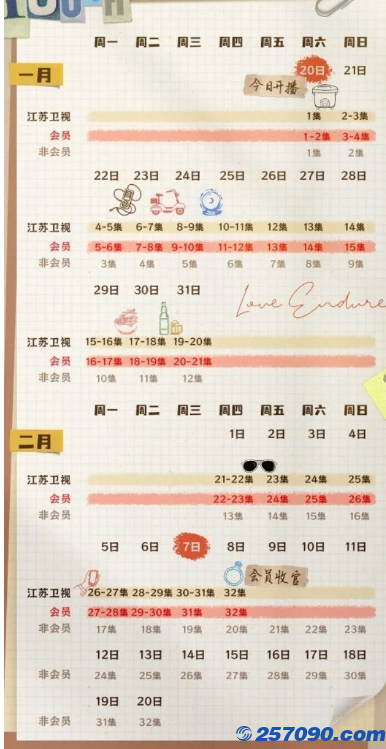 YOUTH
周一 周二 周三 周四 周五 周六 周日
一月 20日 21日
今日开播
江苏卫视 1集 2-3集
会员 1-2集 3-4集
非会员 1集 2集
22日 23日 24日 25日 26日 27日 28日
江苏卫视 4-5集 6-7集 8-9集 10-11集 12集 13集 14集
会员 5-6集 7-8集 9-10集 11-12集 13集 14集 15集
非会员 3集 4集 5集 6集 7集 8集 9集
29日 30日 31日
Love Endure
江苏卫视 15-16集 17-18集 19-20集
会员 16-17集 18-19集 20-21集
非会员 10集 11集 12集
周一 周二 周三 周四 周五 周六 周日
二月 1日 2日 3日 4日
江苏卫视 21-22集 23集 24集 25集
会员 22-23集 24集 25集 26集
非会员 13集 14集 15集 16集
5日 6日 7日 8日 9日 10日 11日
会员收官
江苏卫视 26-27集 28-29集 30-31集 32集
会员 27-28集 29-30集 31集 32集
非会员 17集 18集 19集 20集 21集 22集 23集
12日 13日 14日 15日 16日 17日 18日
非会员 24集 25集 26集 27集 28集 29集 30集
19日 20日
非会员 31集 32集
257090.com